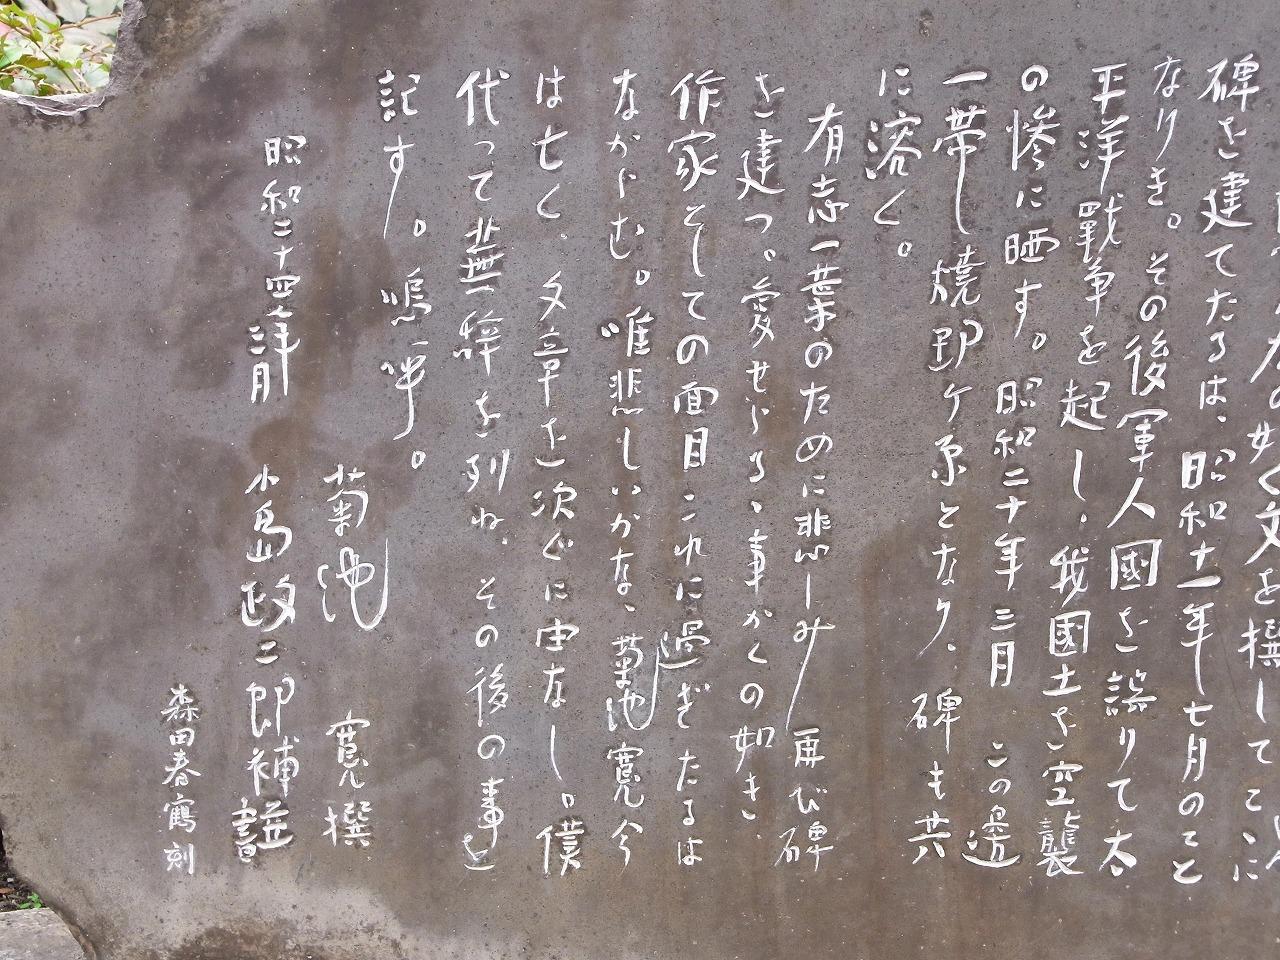 の如く文を撰してここに
碑を建てたるは、昭和十一年七月のこと
なりき。その後軍人國を誤りて太
平洋戰争を起し、我國土を空襲
の惨に晒す。昭和二十年三月 この邊
一帯し焼野ケ原となり、碑も共
に溶く。
有志一葉のために悲しみ 再び碑
を建つ。愛せらるゝ事かくの如き、
作家そしての面目これに過ぎたるは
なからむ。唯悲しいかな、菊池寛今
は亡く、文章を次ぐに由なし。僕
代って蕪辞を列ね、その後の事を
記す。嗚呼。
菊池 寛 撰
昭和二十四年三月 小島政二郎補並書
森田春鶴刻